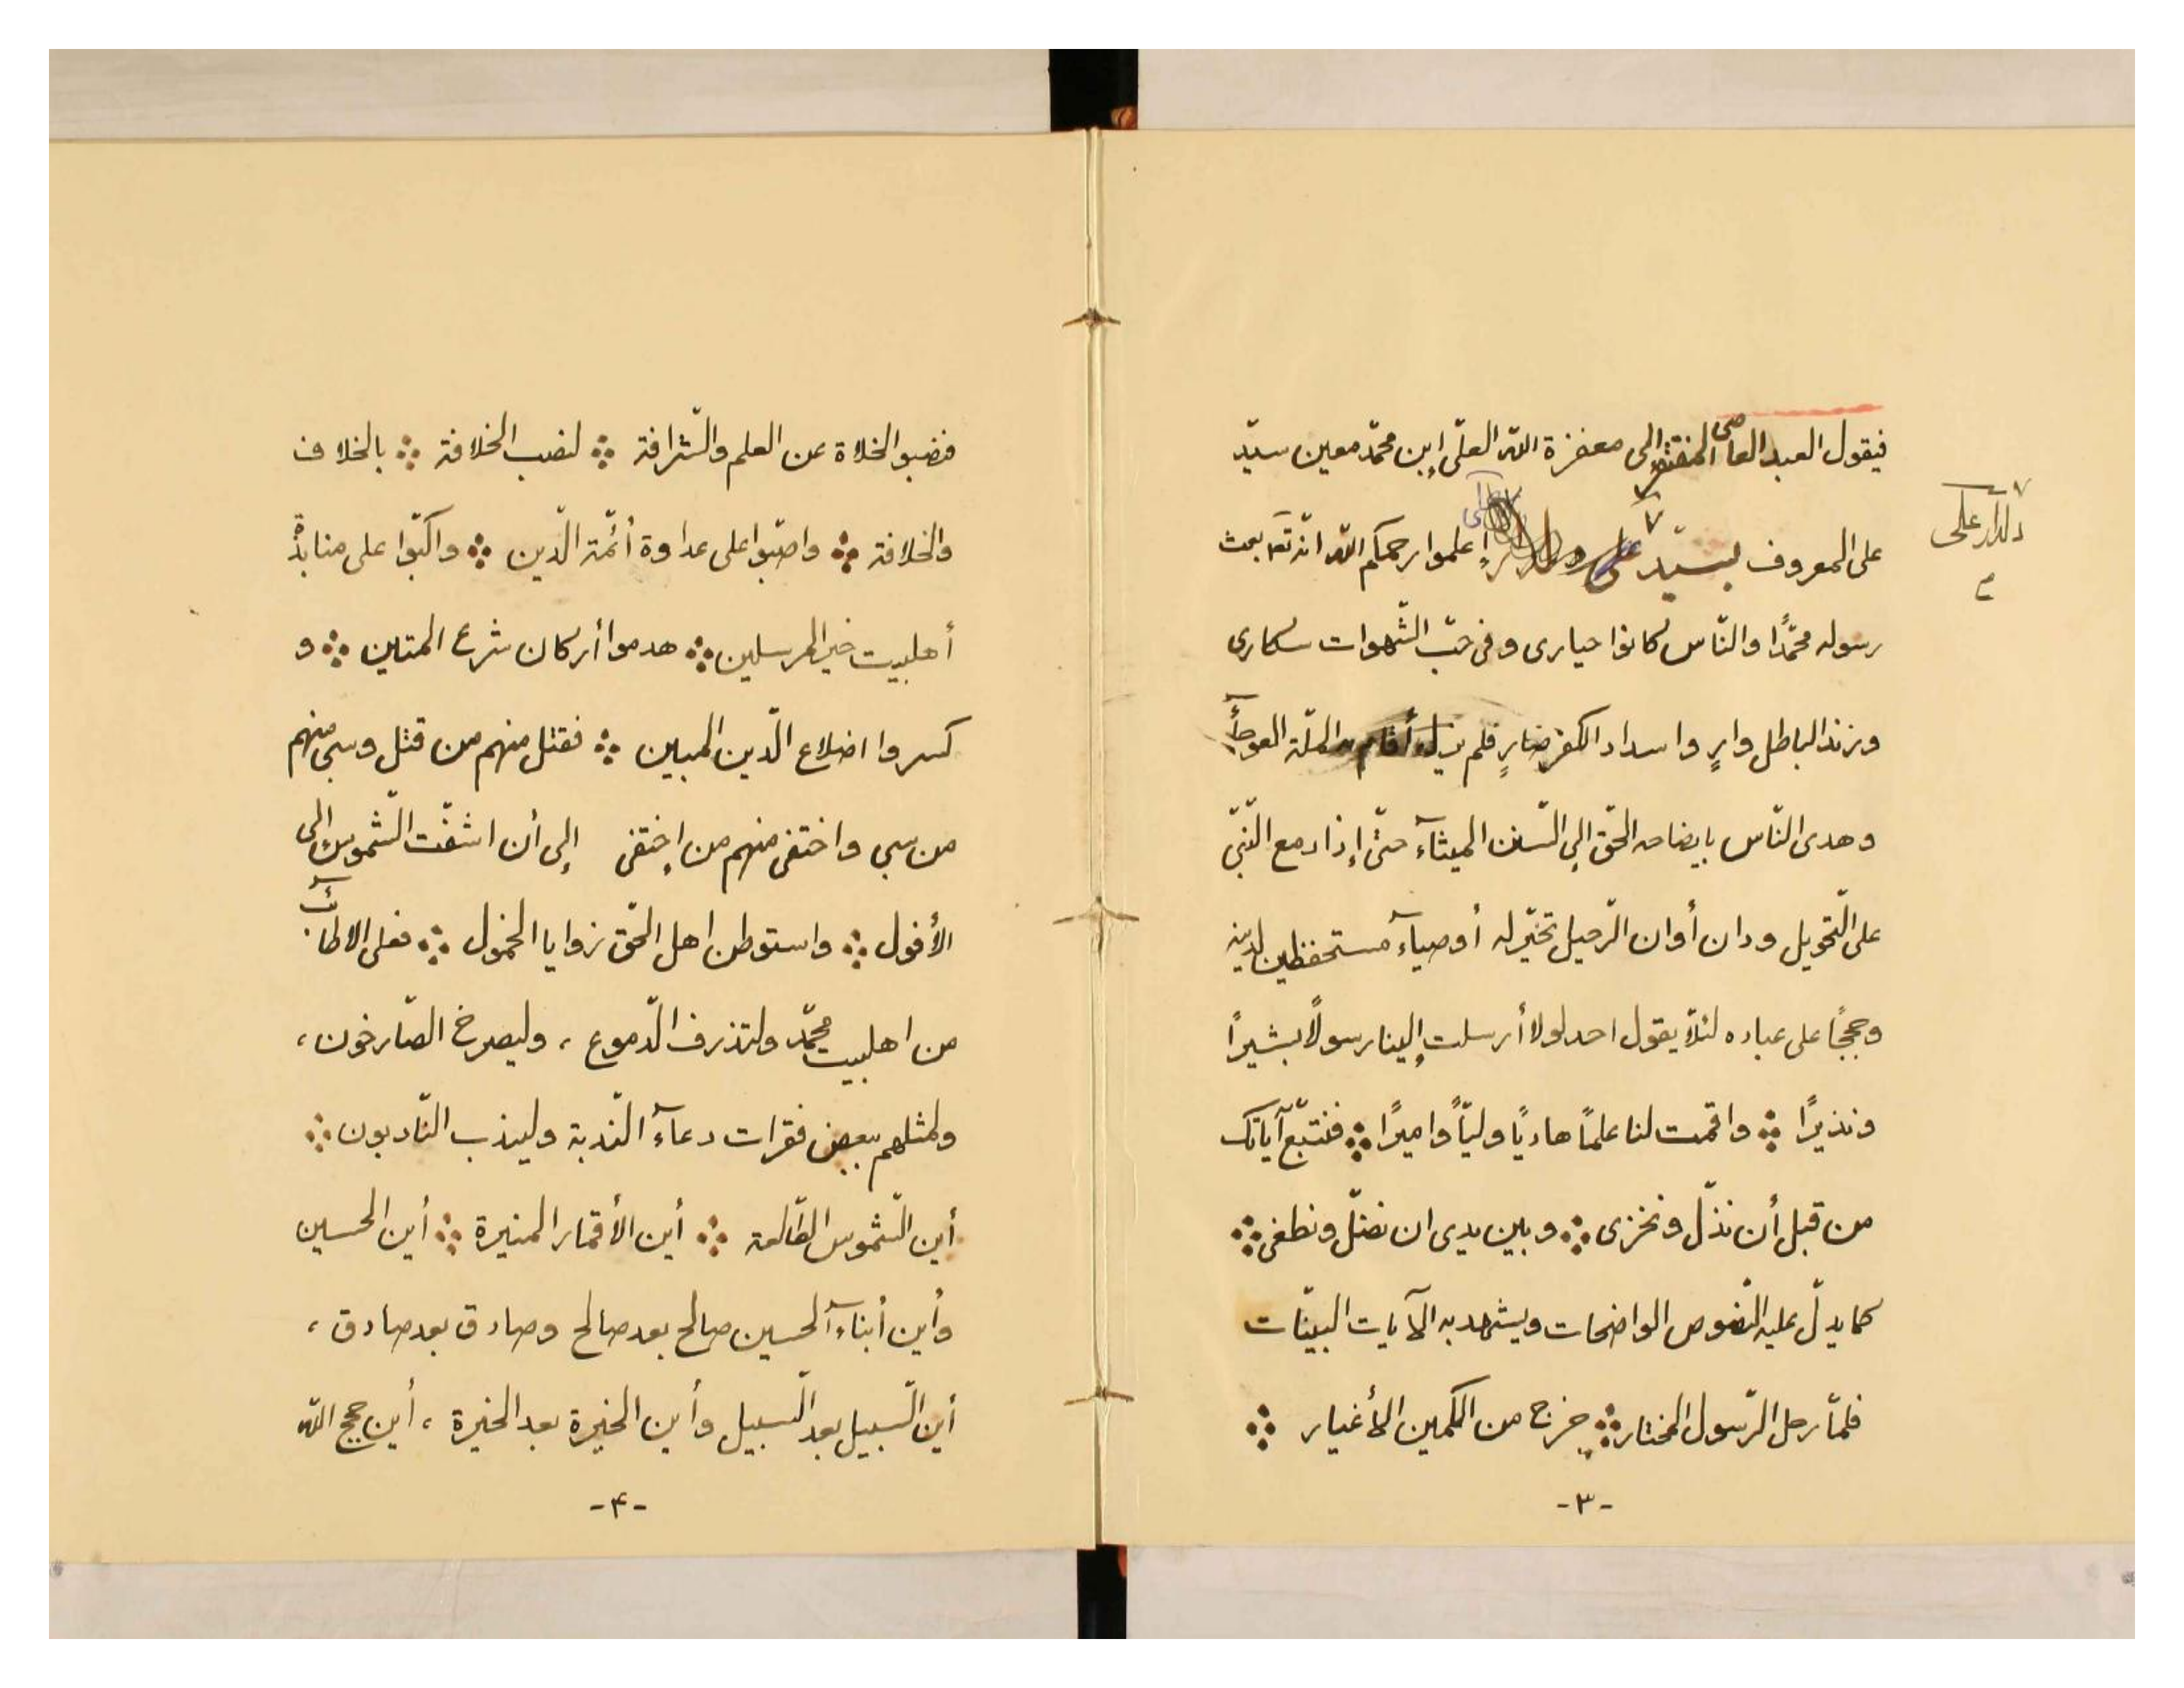 فيقول العبد العاصى المفتقر إلى مغفرة اللّه العلّى إبن محمّد معين سيّد
على المعروف بسيّد إعلموا رحمكم اللّه انّه تعٓ بعث
دلدار على
رسوله محمّدًا والنّاس كانوا حيارى وفى حبّ الشّهوات سكارى
وزند الباطل وارٍ واسداد الكفر ضارٍ فلم يزل أقام به الملّة العوجآء
وهدى النّاس بايضاحه الحّق إلى السّنن الميثآء حتّى إذا دمع النّبّى
على التّحويل ودان أوان الرّحيل تخيّر له أوصيآء مستحفظين لدينه
وحججًا على عباده لئلّا يقول احد لولا أرسلت إلينا رسولًا بشيرًا
ونذيرًا ؞ واقمت لنا علمًا هاديًا وليًّا واميرًا ؞ فنتّبع آياتك
من قبل أن نذّل ونخزى ؞ وبين يدى ان نضّل ونطغى ؞
كما يدّل عليه النّصوص الواضحات ويشهد به الآيات البيّنات
فلمّا رحل الرّسول المختار ؞ خرج من الكمين الأغيار ؞
-٣-
فنصبوا الخلاة عن العلم والشّرافة ؞ لنصب الخلافة ؞ بالخلاف
والخلافة ؞ واصّبوا على عداوة أئمّة الّدين ؞ واكبّوا على منابذة
أهلبيت خير المرسلين ؞ هدموا أركان شرع المتين ؞ و
كسروا اضلاع الّدين المبين ؞ فقتل منهم من قتل وسبى منهم
من سبى واختفى منهم من إختفى إلى أن اشفّت الشّموس إلى
الأفول ؞ واستوطن اهل الحّق زوايا الخمول ؞ فعلى الاطآئب
من اهلبيت محمّد ولتذرف الّدموع ، وليصرخ الصّارخون ،
ولمثلهم ببعض فقرات دعآء النّدبة وليندب النّادبون ؞
أين الشّموس الطّالعة ؞ أين الأقمار المنيرة ؞ أين الحسين
وأين أبنآء الحسين صالح بعد صالح وصادق بعد صادق ،
أين السّبيل بعد السّبيل وأين الخيرة بعد الخيرة ، أين حجج اللّه
-۴-